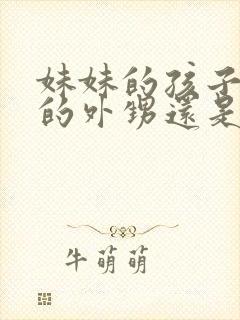 妹妹的孩子
的外甥還是
牛萌萌